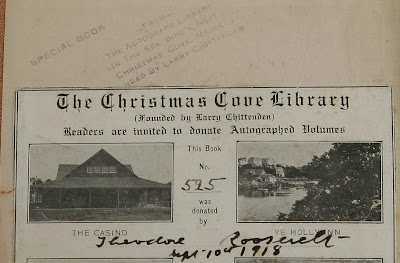 SPECIAL BOOK
FROM
THE AUTOGRAPH LIBRARY
IN THE SEA BIRD'S NEST
CHRISTMAS COVE, MAINE
FOUNDED BY LARRY CHITTENDEN
The Christmas Cove Library
(Founded by Larry Chittenden)
Readers are invited to donate Autographed Volumes
This Book
No.
525
was
donated
by
THE CASINO
YE HOLLY INN
Theodore Roosevelt
Sept 10th 1918